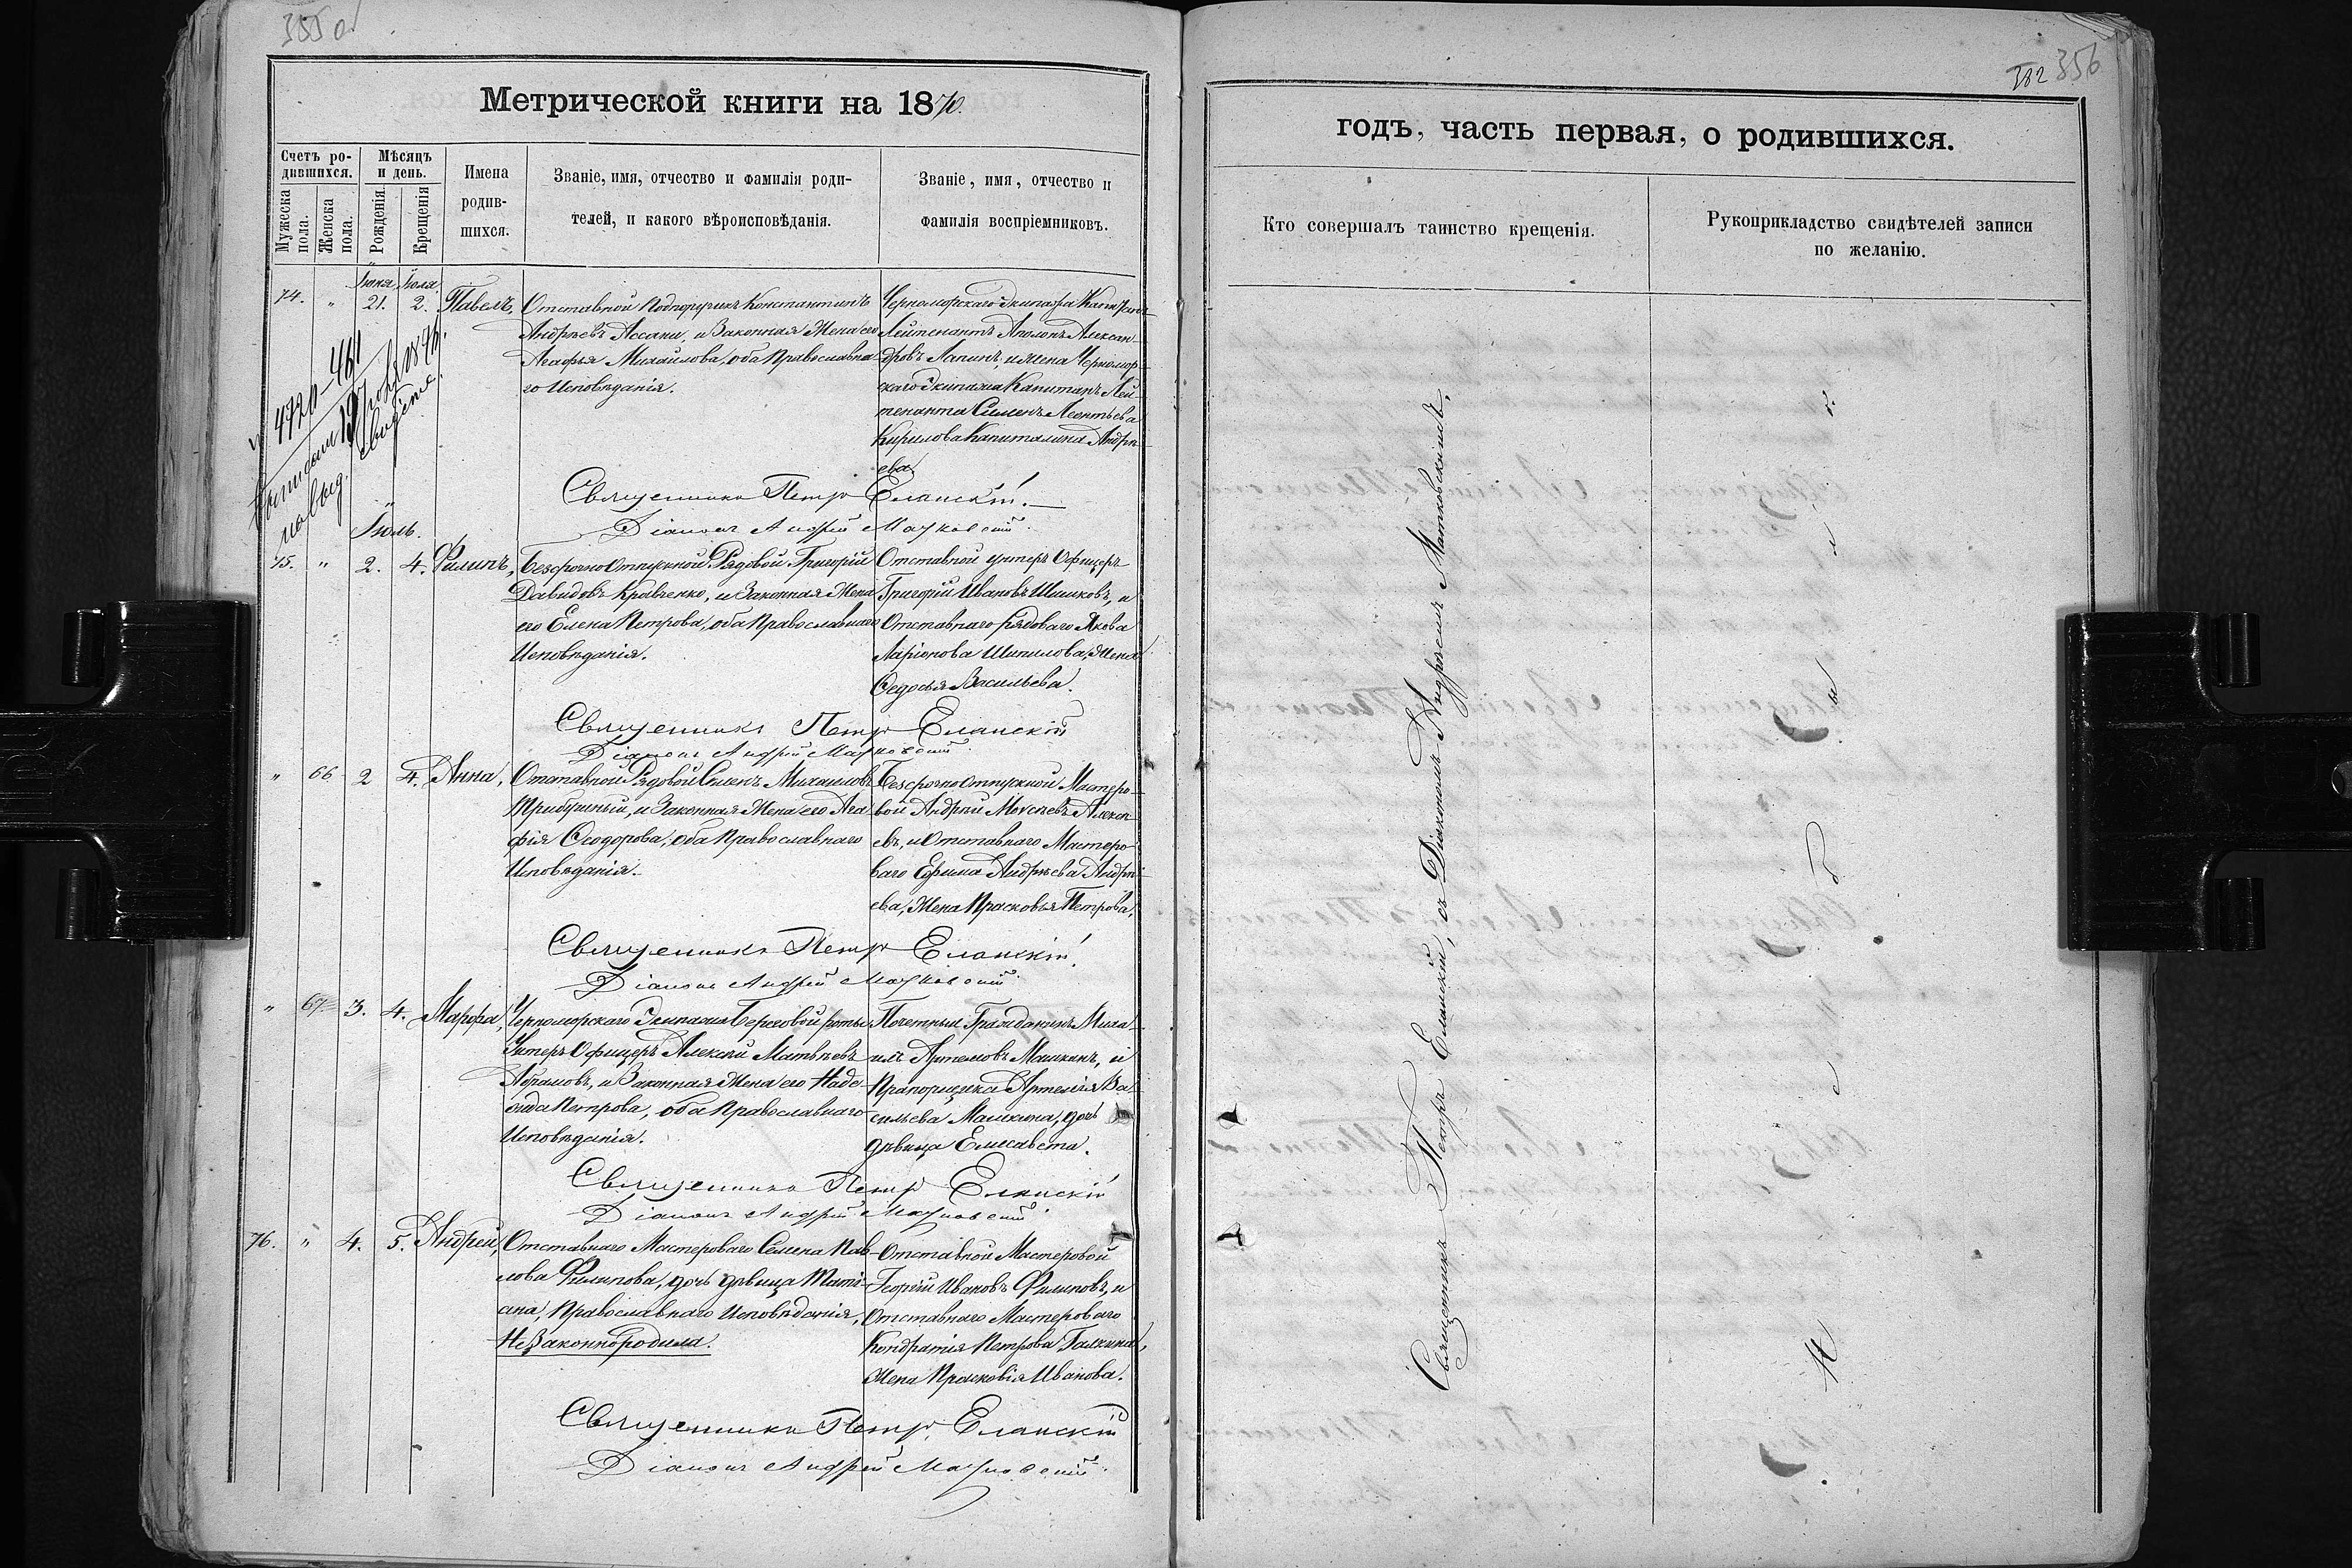 355 об
Метрической книги на 1870.
Счетъ ро-
дившихся.
Мѣсяцъ
и день.
Мужеска
пола.
Женска
пола.
Рожденія.
Крещенія
Имена
родив-
шихся.
Званіе, имя, отчество и фамилія роди-
телей, и какого вѣроисповѣданія.
Званіе, имя, отчество и
фамилія воспріемниковъ.
Іюня Іюля
74. " 21. 2. Павелъ,
Отставной Подпоручикъ Константинъ
Андреевъ Ассани, и Законная Жена его
Агафья Михайлова, оба Православна-
го Исповѣданія.
Черноморскаго Экипажа Капитанъ-
Лейтенантъ Аполонъ Алексан-
дровъ Лапинъ, и жена Черномор-
скаго Экипажа Капитанъ Лей-
тенанта Симена Леонтьева
Кирилова Капиталина Андре-
ева.
№ 4720-461
1870
свидет.
Священникъ Петръ Еланскій.
Діаконъ Андрей Матковскій.
Іюль.
75. " 2. 4. Филипъ,
Безсрочноотпускной Рядовой Григорій
Давидовъ Кравченко, и Законная Жена
его Елена Петрова, оба Православнаго
Исповѣданія.
Отставной унтеръ Офицеръ
Григорій Ивановъ Шишковъ, и
Отставнаго рядоваго Якова
Ларіонова Шипилова, жена
Федосья Васильева.
Священникъ Петръ Еланскій
Діаконъ Андрей Матковскій
" 66 2 4. Анна,
Отставной Рядовой Семенъ Михаиловъ
Трибушный, и Законная Жена его Ага-
фія Феодорова, оба Православнаго
Исповѣданія.
Безсрочноотпускной Мастеро-
вой Андрей Моисеевъ Алексе-
евъ, и Отставнаго Мастеро-
ваго Ефима Андреева Андре-
ева, Жена Прасковья Петрова.
Священникъ Петръ Еланскій.
Діаконъ Андрей Матковскій
" 67 3. 4. Марфа,
Черноморскаго Экипажа Береговой роты
Унтеръ Офицеръ Алексей Матвеевъ
Абрамовъ, и Законная Жена его Наде-
жда Петрова, оба Православнаго
Исповѣданія.
Почетный Гражданинъ Миха-
илъ Артемовъ Машкинъ, и
Прапорщика Артемія Ва-
сильева Машкина, дочь
девица Елисавета.
Священникъ Петръ Еланскій
Діаконъ Андрей Матковскій
76. " 4. 5. Андрей,
Отставнаго Мастероваго Семена Пав-
лова Филипова, дочь девица Тати-
ана, Православнаго Исповѣданія,
Незаконнородила.
Отставной Мастеровой
Георгій Ивановъ Филиповъ, и
Отставнаго Мастероваго
Кондратія Петрова Галкина,
Жена Прасковія Иванова.
Священникъ Петръ Еланскій
Діаконъ Андрей Матковскій
382 356
годъ, часть первая, о родившихся.
Кто совершалъ таинство крещенія.
Рукоприкладство свидѣтелей записи
по желанію.
Священникъ Петръ Еланскій, съ Діакономъ Андреемъ Матковскимъ.
Не было